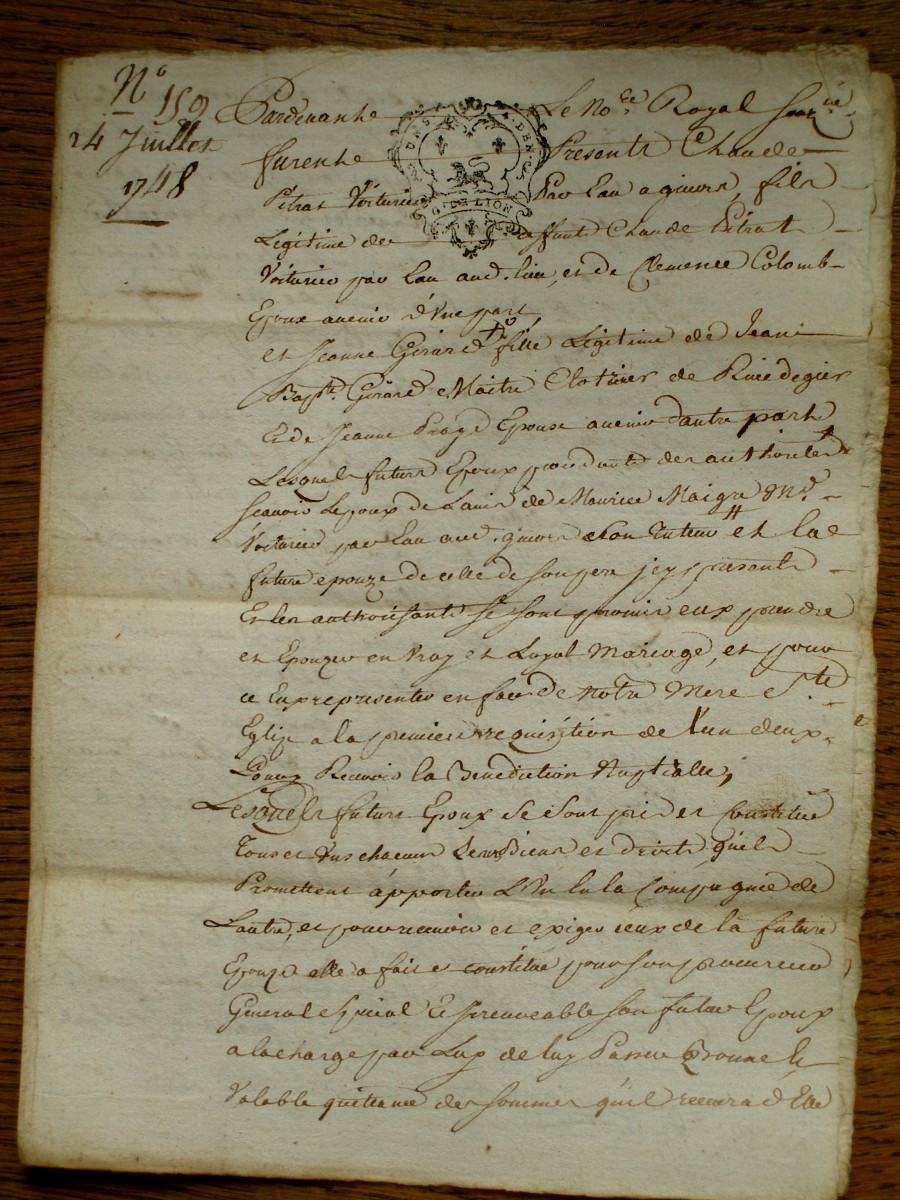 N.º 159
24 Juillet
1748
Pardevant le No.re Royal Sousné
furent Presents Claude
Pitrat Voiturier Par Eau a givors, fils
Legitime de deffunt Claude Pitrat
Voiturier par Eau aud. lieu, et de Clemence Colomb
Epoux avenir d'Vne part,
et Jeanne Girard fille Legitime de Jean
Bapte. Girard Maitre Cloutier de Rivedegier
Et de Jeanne Epouse avenir dautre part
Lesquels futurs Epoux procedants des authorités
scavoir Lepoux de Lavis de Maurice Maigre Md.
Voiturier par Eau aud. givors son Tuteur et la
future epouze de celle de son pere icy presents
Et les authorisants se sont promis eux prendre
et Epouzer en Vray et Loyal Mariage, et pour
ce Eux representer en face de Notre Mere Ste
Eglise a la premiere requisition de l'un deux
Pour y Recevoir la Benediction Nuptialle,
Lesquels futurs Epoux se sont pris et constitué
Tous et Vns chacuns Leurs Biens et droits quils
Promettent apporter L'Vn En la Compagnie de
Lautre, et pour recevoir et exiger ceux de la future
Epouze elle a fait et constitué pour son procureur
General special Et irrevocable son futur Epoux
a la charge par Luy de luy Passer Bonne &
Valable quittance des sommes quil recevra d'Elle
DEN
G. DE LION